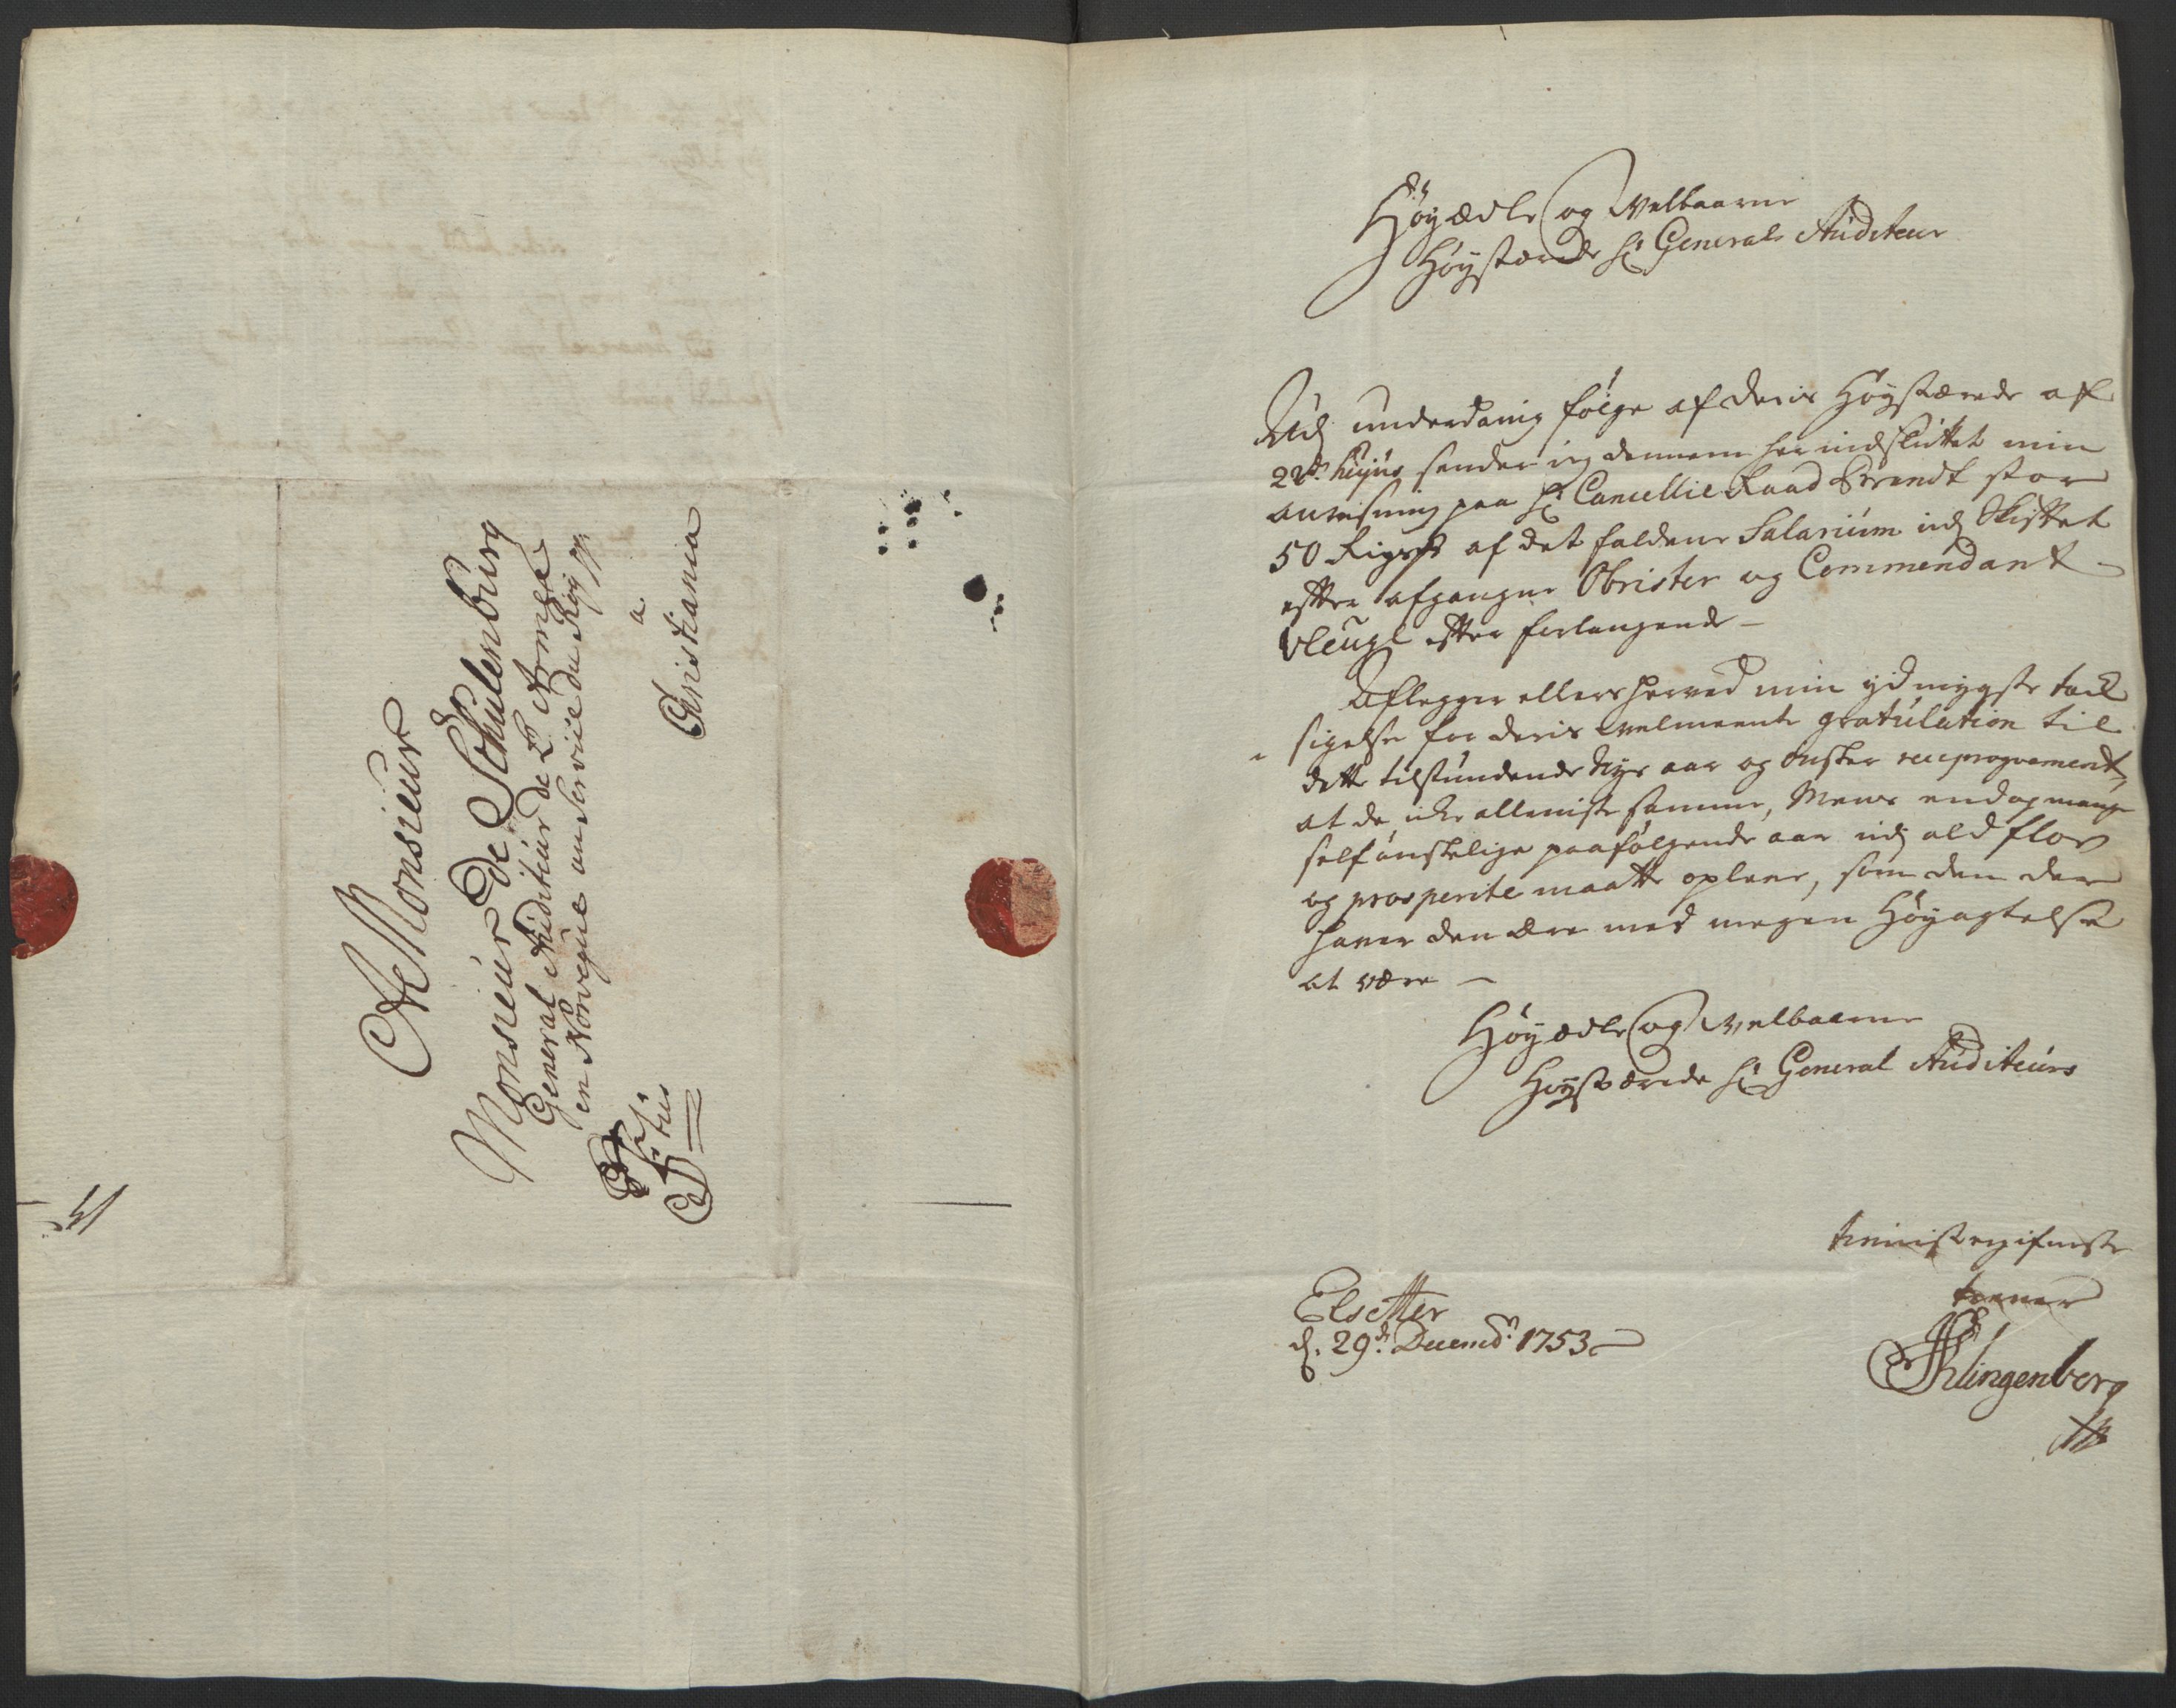 A Monsieur
Monsieur de Schulenburg
General Auditeur de L'Armee
en Norvegue au Service du Roy pp
a
Christiania
Høyædle og Welbaarne
Høystærede Hr General Auditeur
Udj underdanig følge af deris Høystærede af
22de hujus sender ieg dennem her indsluttet min
anvisning paa Hr Cancellie Raad Brandt stor
50 Rigsdr af det faldene Salarium udj Skiftet
efter afgangne Obrister og Commendant
Vleugl efter forlangende
Aflegger ellers herved min ydmygste tack
sigelse for deris velmeente gratulation til
dette tilstundende Nye aar og ønsker reciproqvement,
at de icke alleniste samme, Mens endog mange
self ønskelige paafølgende aar udj ald flor
og prosperite maatte opleve, som den der
haver den ære med megen Høyagtelse
at være
Høyædle og Welbaarne
Høystærede Hr General Auditeurs
tienistergifneste
tiener
Klingenberg
Elsetter
d. 29de Decembr 1753